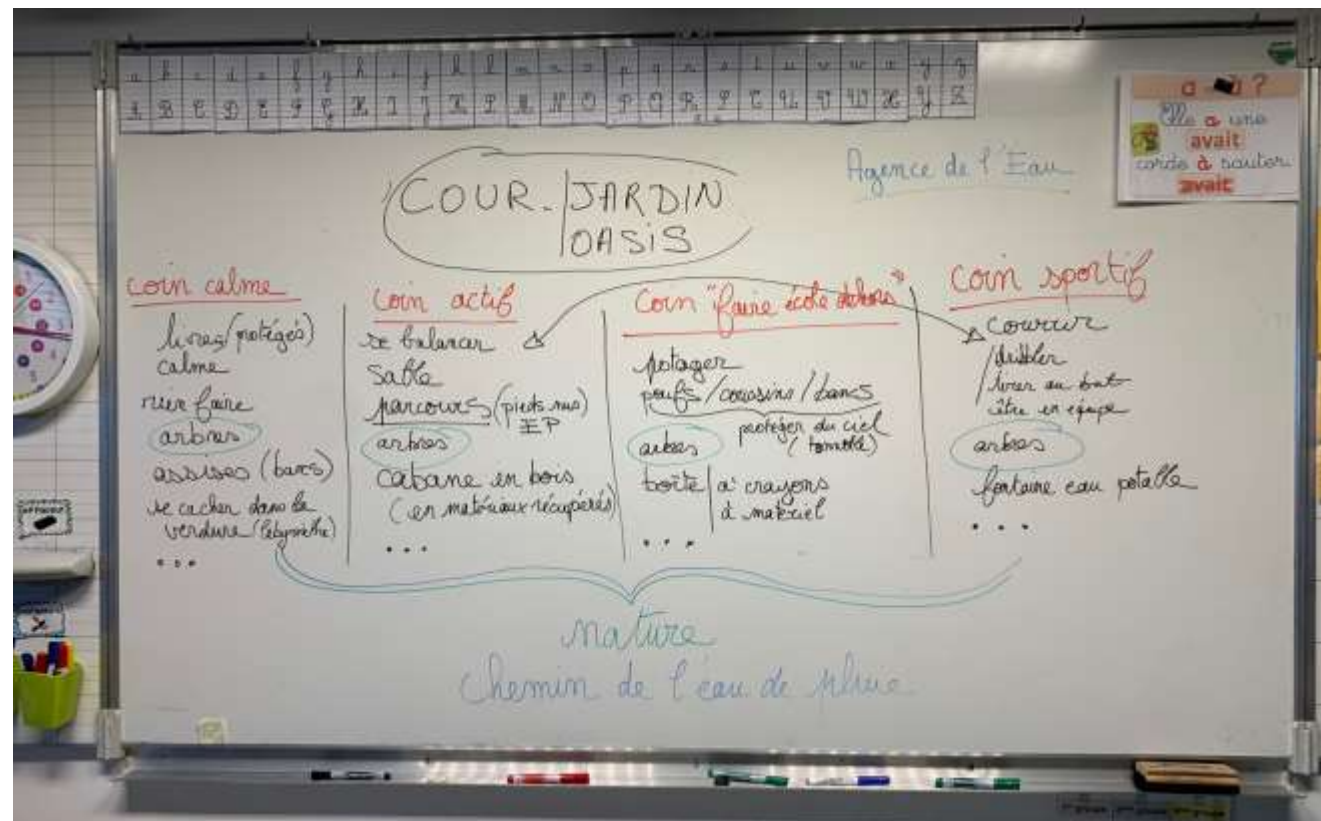 a b c d e f g h i j k l m n o p q r s t u v w x y z
A B C D E F G H I J K L M N O P Q R S T U V W X Y Z
a ?
Elle a une
avait
corde à sauter
avait
Agence de l'Eau
COUR - JARDIN
OASIS
coin calme
livres (protégés)
calme
rien faire
arbres
assises (bancs)
se cacher dans la
verdure (labyrinthe)
...
coin actif
se balancer
sable
parcours (pieds nus)
arbres
cabane en bois
(en matériaux récupérés)
...
coin "faire école dehors"
potager
poufs / coussins / bancs
protéger du ciel
arbres
boîte à crayons
à matériel
...
coin sportif
courir
/ dribbler
/ tirer au but
être en équipe
arbres
fontaine eau potable
...
nature
chemin de l'eau de pluie